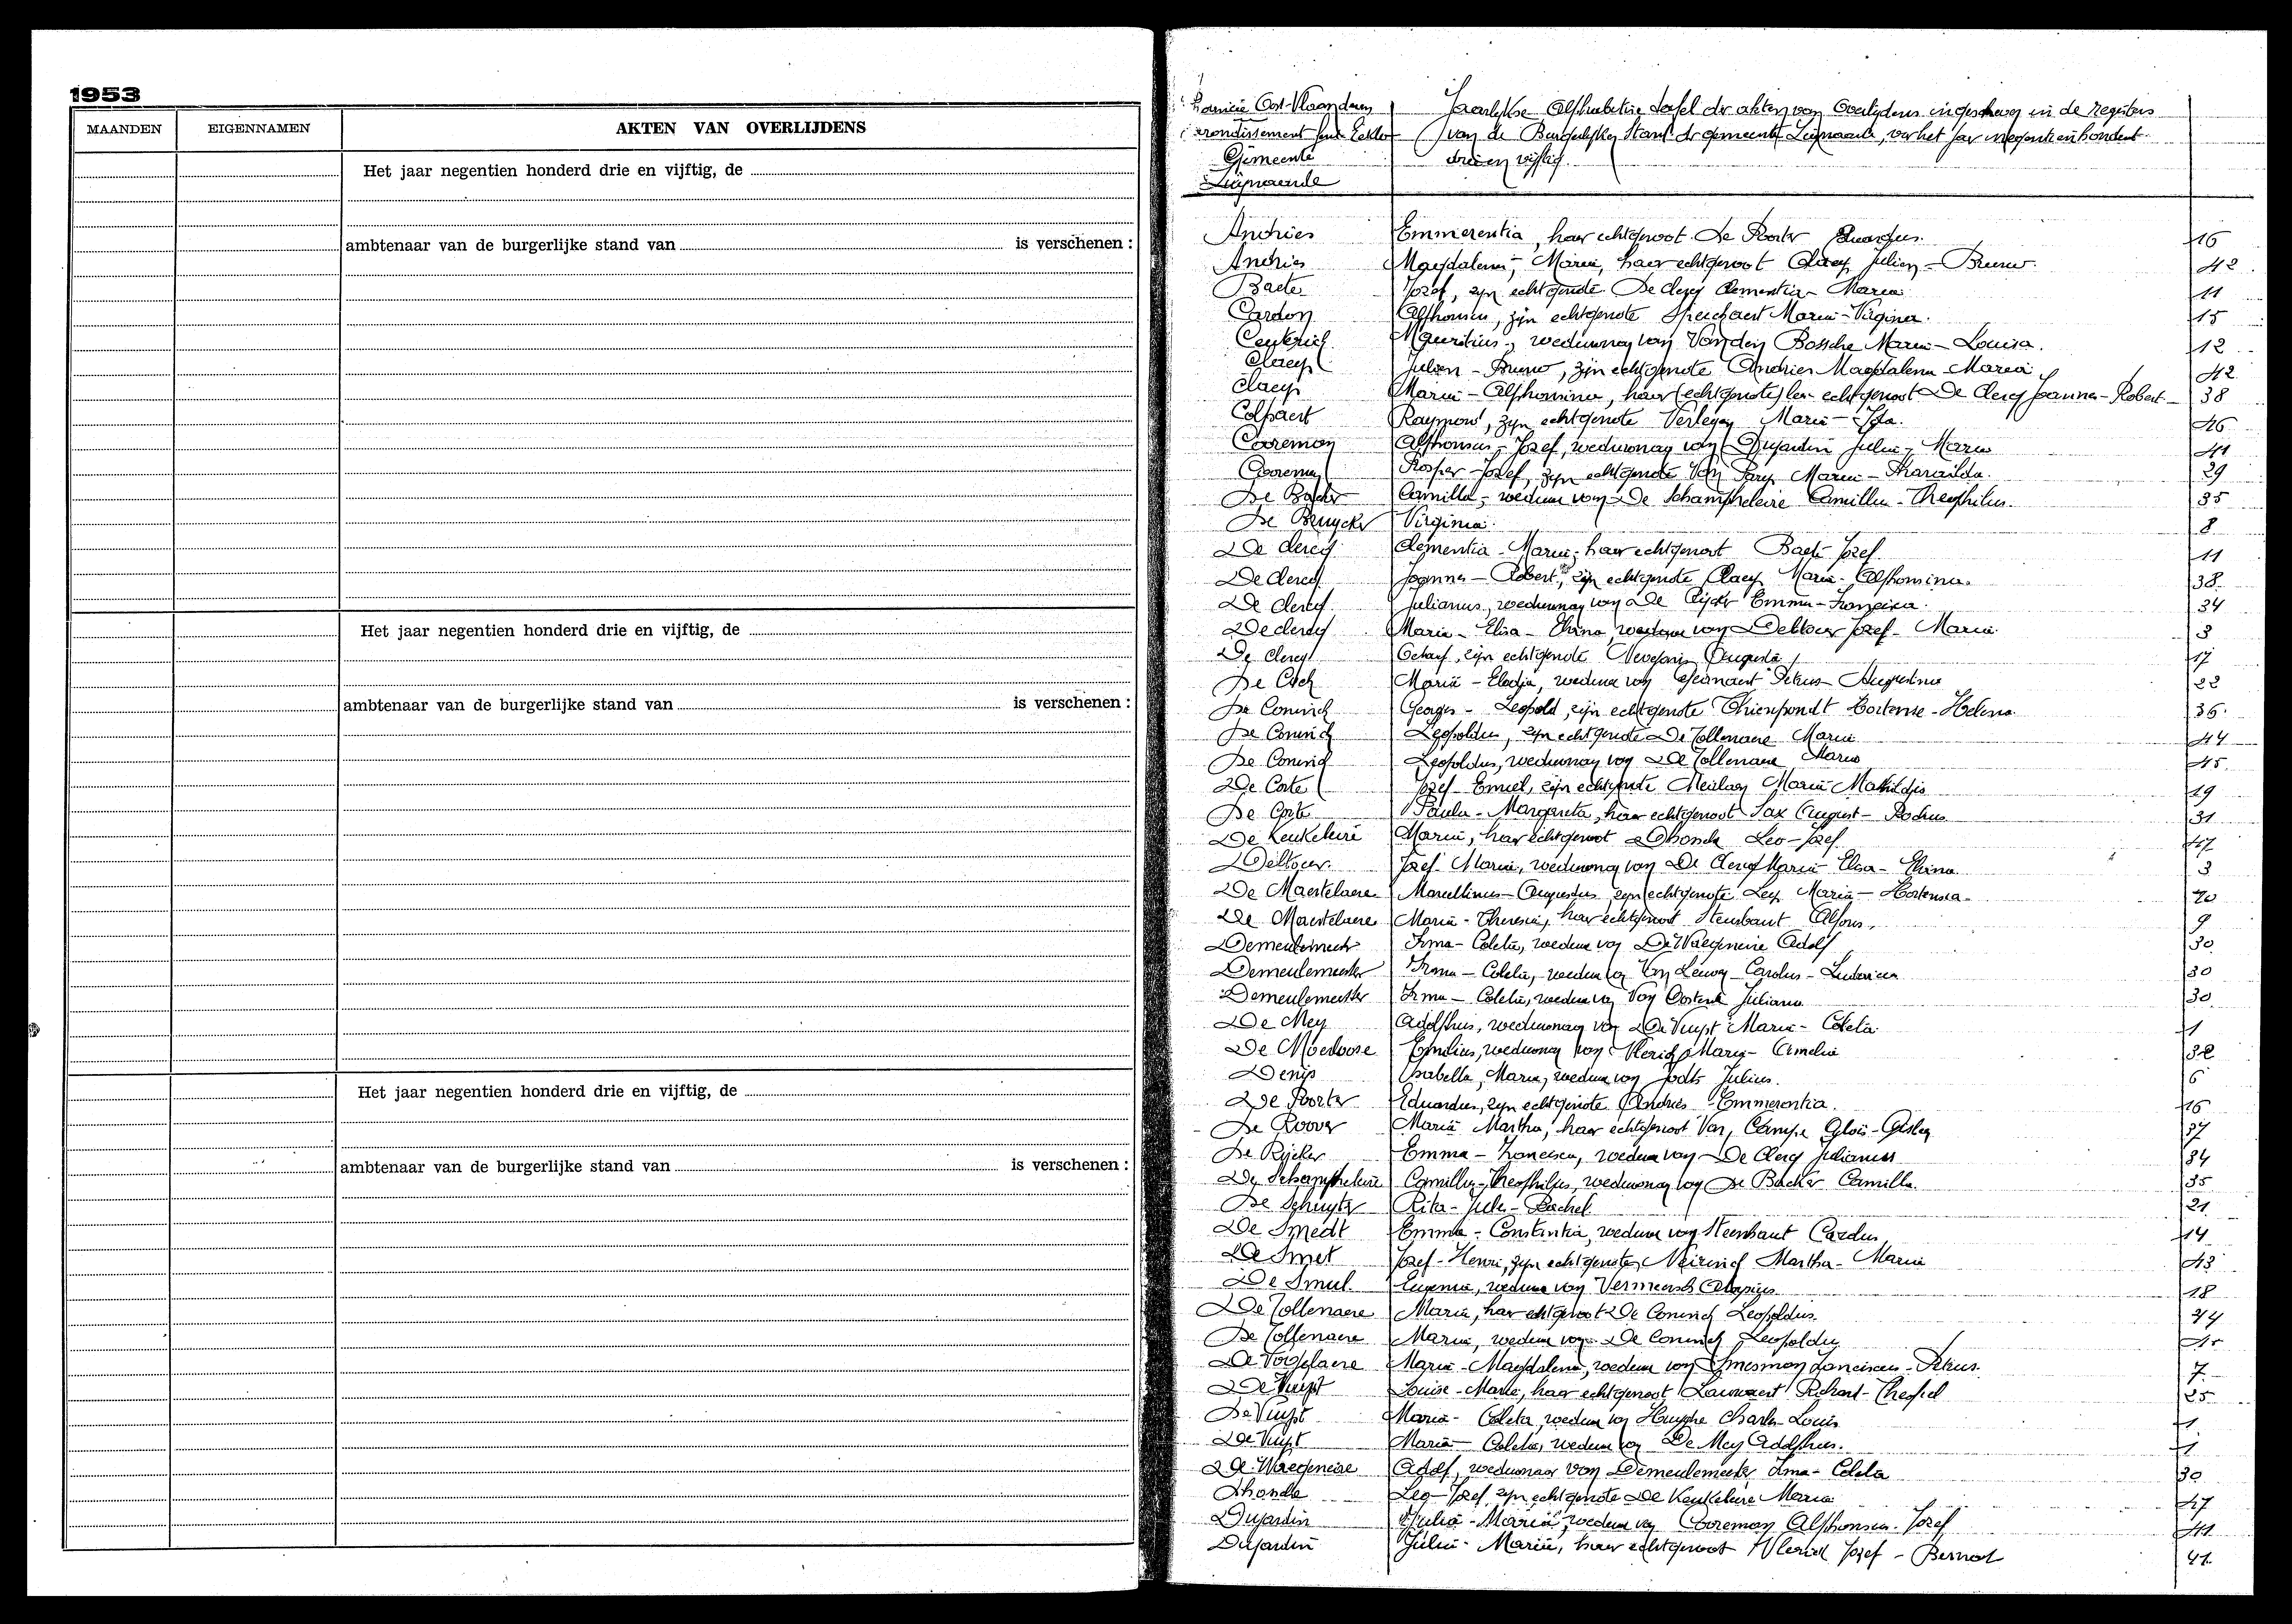 1953
MAANDEN EIGENNAMEN AKTEN VAN OVERLIJDENS
Het jaar negentien honderd drie en vijftig, de
ambtenaar van de burgerlijke stand van is verschenen :
Het jaar negentien honderd drie en vijftig, de
ambtenaar van de burgerlijke stand van is verschenen :
Het jaar negentien honderd drie en vijftig, de
ambtenaar van de burgerlijke stand van is verschenen :
Oost-Vlaanderen Jaarlijkse Alphabetise tafel der akten van Overlijdens ingeschreven in de registers
arrondissement Gent Eeklo van de Burgerlijke Stand der gemeente Zuijnaarde, over het jaar negentienhonderd
Gemeente drie en vijftig
Andries Emmerentia, haar echtgenoot De Poorter Eduardus. 16
Andries Magdalena, Maria, haar echtgenoot Claeys Julien - Bruno. 42
Baete Jozef, zijn echtgenote De Clercq Clementia - Maria 11
Cardon Alphonsus, zijn echtgenote Maria - Virginia. 15
Mauritius, weduwnaar van Van den Bossche Maria - Louisa. 12
Claeys Julien - Bruno, zijn echtgenote Andries Magdalena Maria 42
Claeys Maria - Alphonsina, haar (echtgenote) echtgenoot De Clercq Joannes - Robert 38
Colpaert Raymond, zijn echtgenote Maria - Ida. 46
Cooreman Alphonsus - Jozef, weduwnaar van Dujardin Julia - Maria 41
Cooreman Prosper - Jozef, zijn echtgenote Van Parys Maria - Pharaïlda. 29
De Backer Camilla, weduwe van De Schampheleire Camillus - Theophilus. 35
De Bruycker Virginia. 8
De Clercq Clementia - Maria, haar echtgenoot Baete Jozef. 11
De Clercq Joannes - Robert, zijn echtgenote Claeys Maria - Alphonsina. 38
De Clercq Julianus, weduwnaar van De Rijcker Emma - Francisca. 34
De Clercq Maria - Elisa - weduwe van Deltour Jozef - Maria 3
De Clercq zijn echtgenote Augusta 17
Maria - Elodia, weduwe van Petrus Augustinus 22
De Coninck Georges - Leopold, zijn echtgenote Thienpondt Hortense - Helena 36
De Coninck Leopoldus, zijn echtgenote De Tollenaere Maria 44
De Coninck Leopoldus, weduwnaar van De Tollenaere Maria 45
De Corte Jozef - Emiel, zijn echtgenote Maria Mathildis 19
De Corte Paula - Margareta, haar echtgenoot Sax August - Rochus 31
De Keukeleire Maria, haar echtgenoot Dhondt Leo - Jozef 47
Deltour Jozef - Maria, weduwnaar van De Clercq Maria - Elisa - 3
De Maertelaere Marcellinus - Augustus, zijn echtgenote Leys Maria - Hortensia 20
De Maertelaere Maria - Theresia, haar echtgenoot Steenhaut Alfons. 9
Demeulemeester Irma - Coleta, weduwe van De Waegeneire Adolf 30
Demeulemeester Irma - Coleta, weduwe van Van Leuven Carolus - Ludovicus 30
Demeulemeester Irma - Coleta, weduwe van Van Oostende Julianus 30
De Mey Adolphus, weduwnaar van De Vuyst Maria - Coleta 1
De Moerloose Emilius, weduwnaar van Maria - Amelia 32
Denijs Isabella, Maria, weduwe van Jodts Julius. 6
De Poorter Eduardus, zijn echtgenote Andries Emmerentia. 16
De Roover Maria Martha, haar echtgenoot Van Campe 37
De Rijcker Emma - Francisca, weduwe van De Clercq Julianus 34
De Schampheleire Camillus - Theophilus, weduwnaar van De Backer Camilla. 35
De Schuyter Rita - Rachel 21
De Smedt Emma - Constantia, weduwe van Steenhaut Carolus 14
De Smet Jozef - Henri, zijn echtgenote Neirinck Martha - Maria 43
De Smul Eugenia, weduwe van Vermeersch Aloysius 18
De Tollenaere Maria, haar echtgenoot De Coninck Leopoldus. 44
De Tollenaere Maria, weduwe van De Coninck Leopoldus 45
De Vogelaere Maria - Magdalena, weduwe van Franciscus - Petrus 7
De Vuyst Louise - Marie, haar echtgenoot Richard - Theofiel 25
De Vuyst Maria - Coleta, weduwe van Huyghe Charles - Louis 1
De Vuyst Maria - Coleta, weduwe van De Mey Adolphus. 1
De Waegeneire Adolf, weduwnaar van Demeulemeester Irma - Coleta 30
Dhondt Leo - Jozef, zijn echtgenote De Keukeleire Maria 47
Dujardin Julia - Maria, weduwe van Cooreman Alphonsus - Jozef 41
Dujardin Julia - Maria, haar echtgenoot Vlerick Jozef - Bernard 41